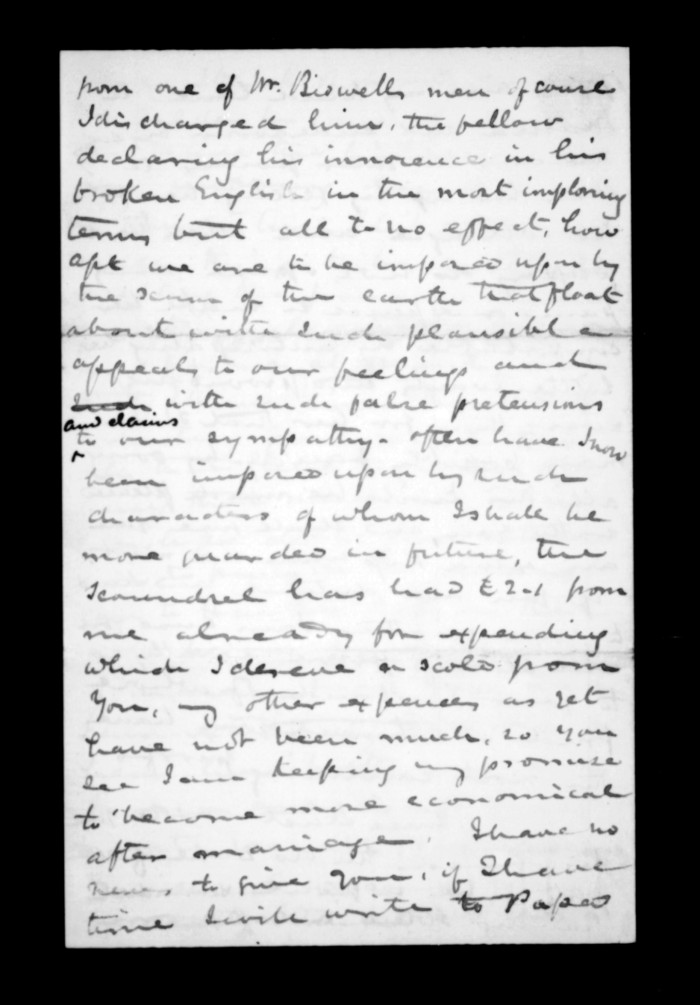 from one of Mr. Biswells men of course
I discharged him, the fellow
declaring his innocence in his
broken English in the most imploring
terms but all to no effect, how
apt we are to be imposed upon by
the scum of the earth that float
about with such plausible
appeals to our feelings and
such with such false pretensions
and claims
to our sympathy. often have I now
been imposed upon by such
characters of whom I shall be
more guarded in future, the
scoundrel has had £2.1 from
me already for expending
which I deserve a scold from
You, my other expences as yet
have not been much, so you
see I am keeping my promise
to become more economical
after marriage. I have no
news to give you, if I have
time I will write to Papa